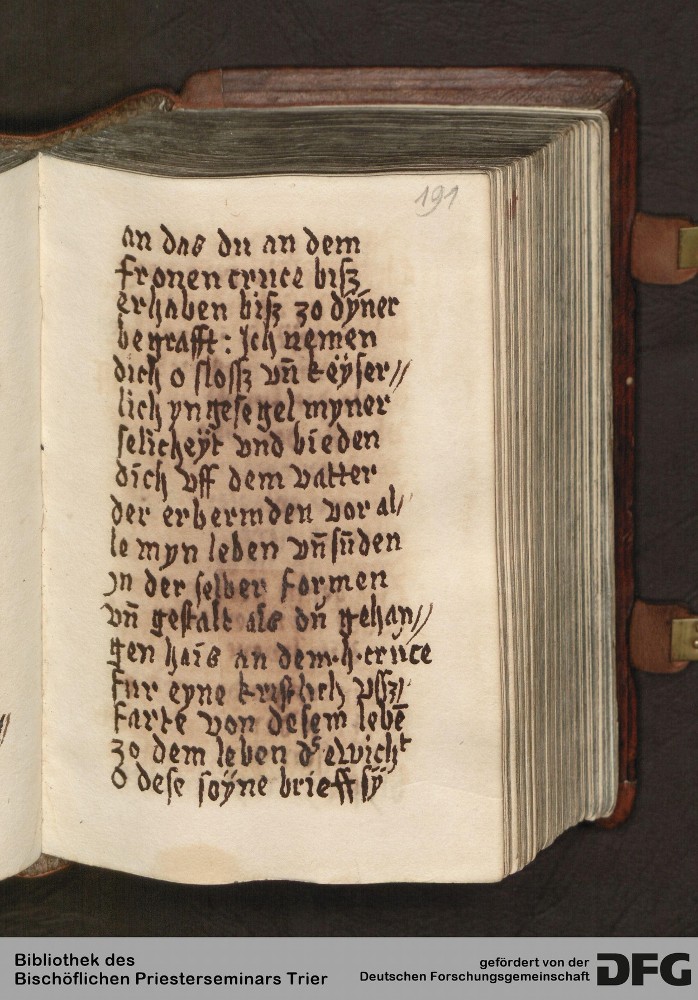 191
an das du an dem
fronen cruce bisz
erhaben bisz zo dÿner
begrafft : Ich nemen
dich o slossz vn̄ keÿser//
lich yngesegel myner
selicheÿt vnd bieden
dich vff dem vatter
der erbermden vor al//
le myn leben vn̄ sūden
jn der selber formen
vn̄ gestalt als dū gehan//
gen hais an dem·h·cruce
fur eyne kristlich vssz//
farte von desem lebē
zo dem leben ds ewicht
O dese soÿne brieff sÿ
//
Bibliothek des
Bischöflichen Priesterseminars Trier
gefördert von der
Deutschen Forschungsgemeinschaft
DFG